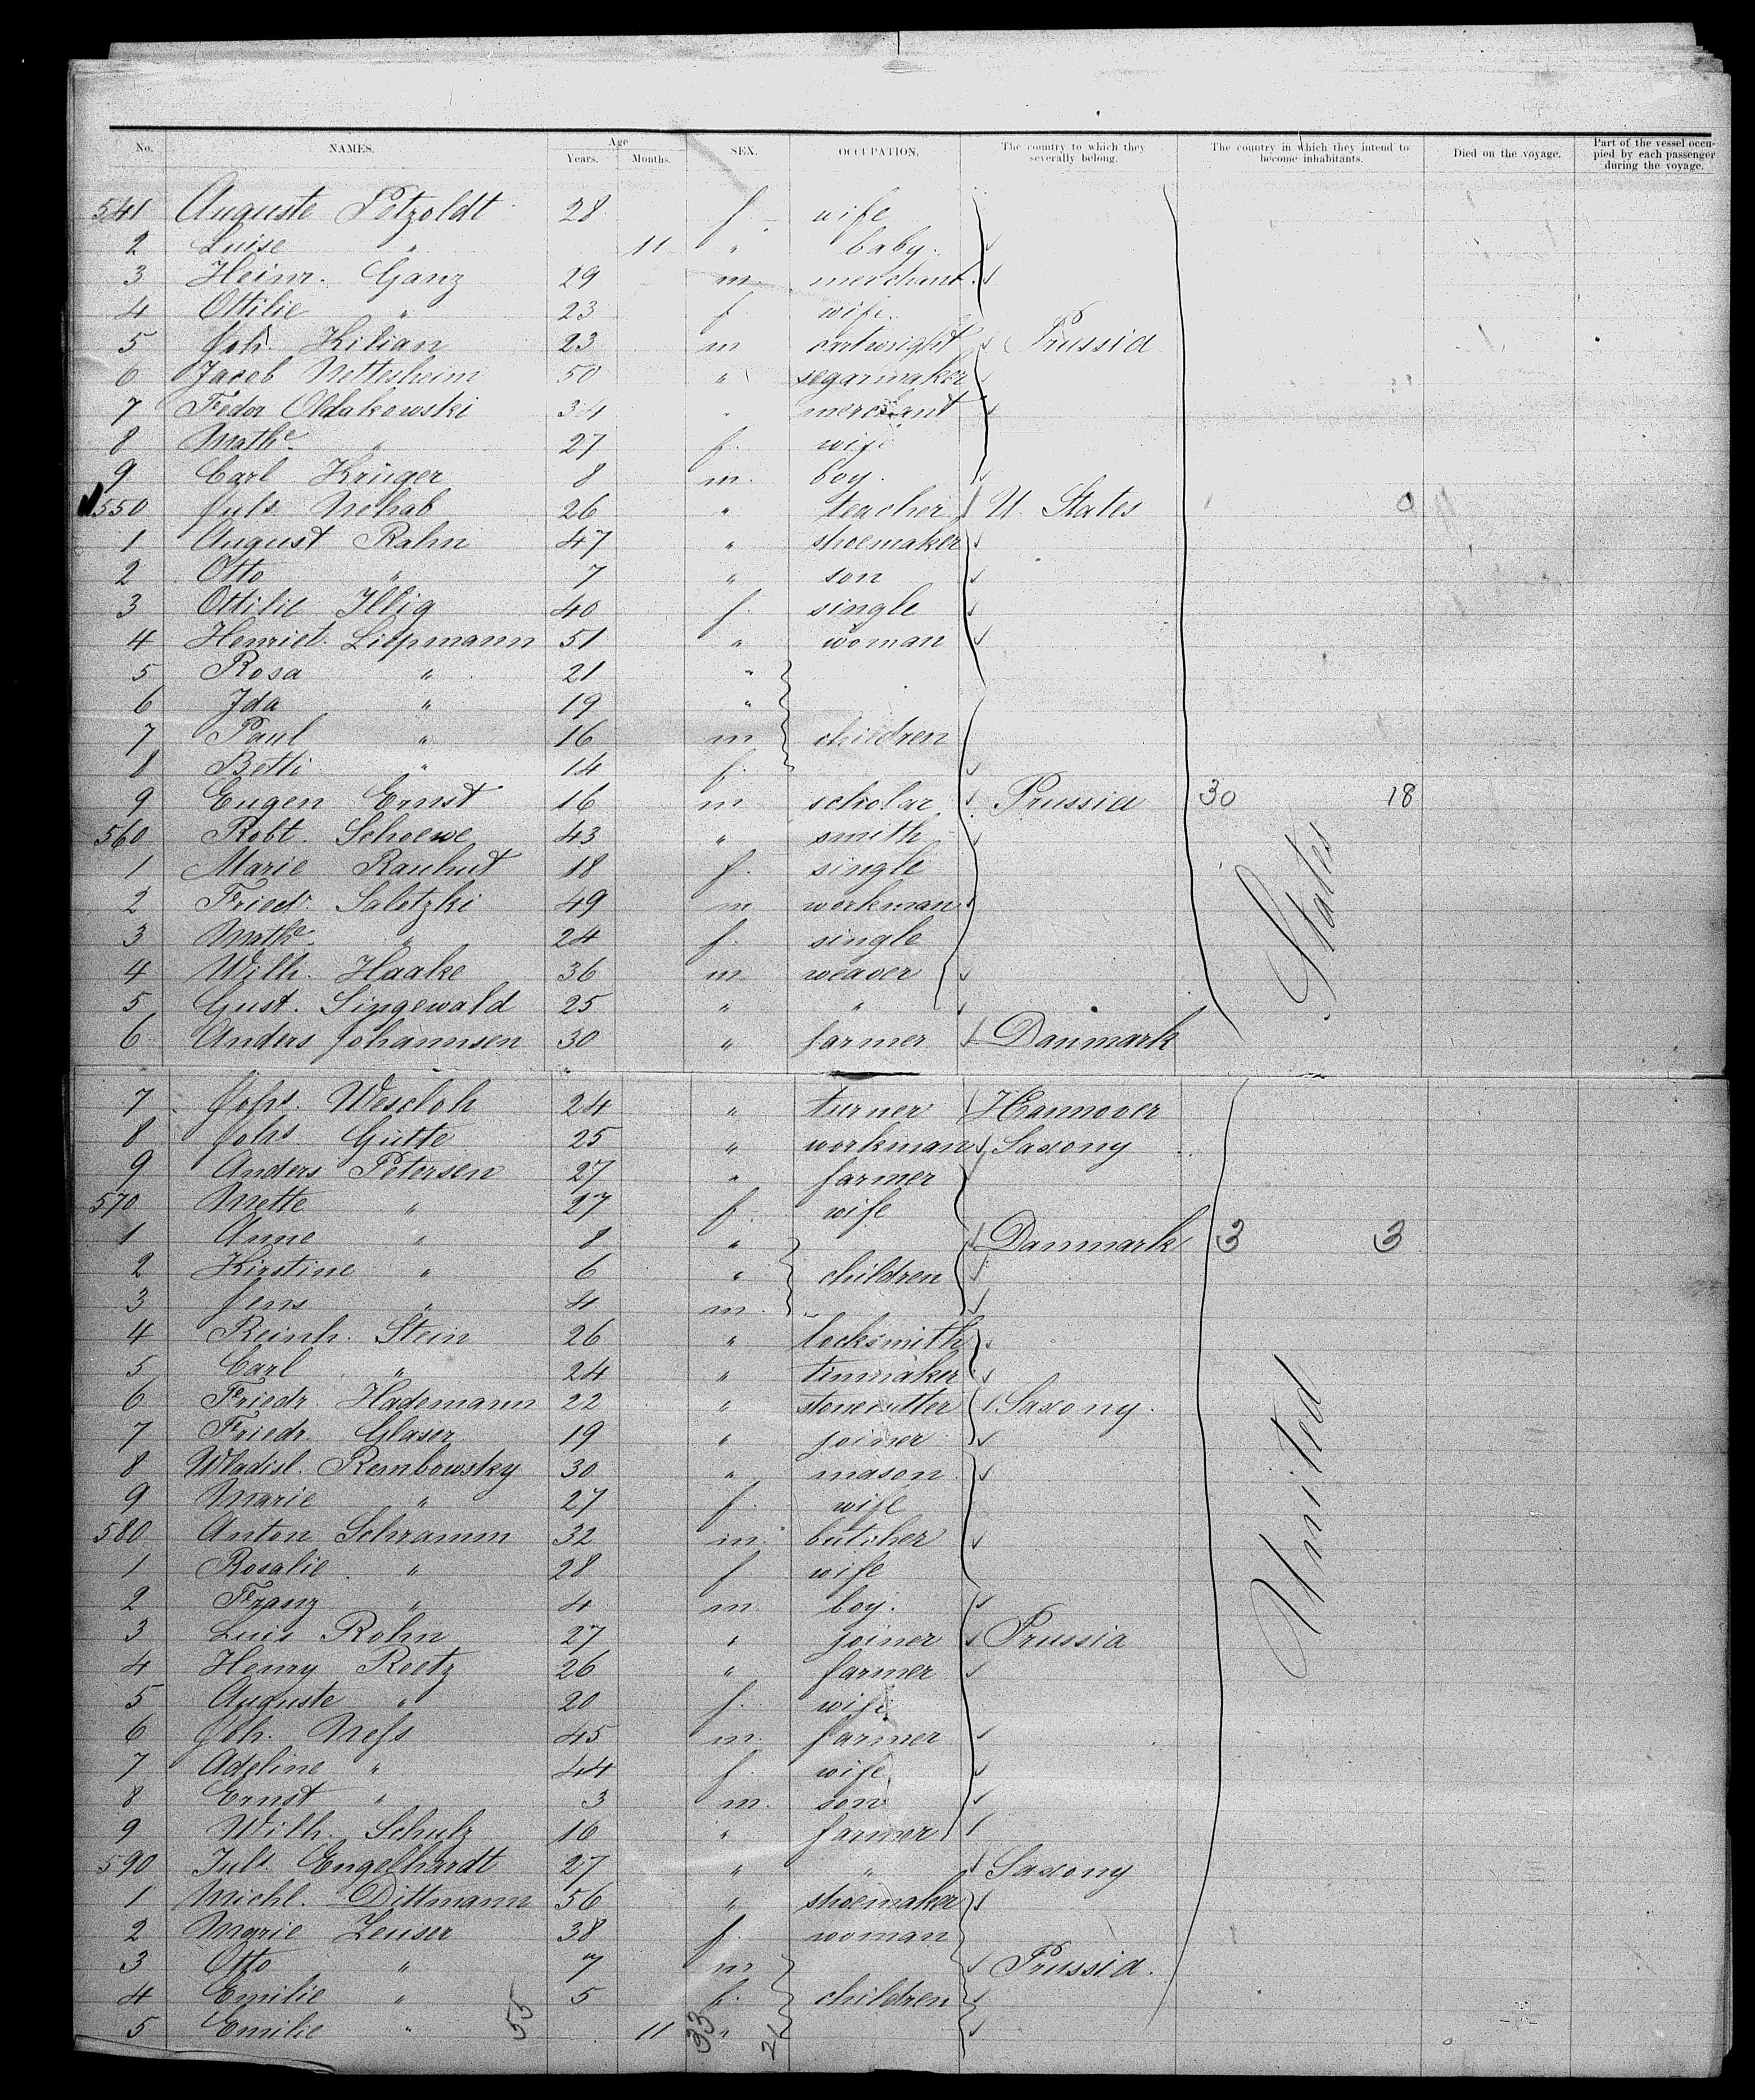 No. NAMES. Age Years. Months. SEX. OCCUPATION. The country to which they severally belong. The country in which they intend to become inhabitants. Died on the voyage. Part of the vessel occupied by each passenger during the voyage.
541 Auguste Petzoldt 28 f. wife
2 Luise " 11 " baby.
3 Heinr. Ganz 29 m. merchant.
4 Ottilie " 23 f. wife.
5 Joh. Kilian 23 m cartwright Prussia
6 Jacob Nettesheim 50 " segarmaker
7 Fedor Oldakowski 34 " merchant
8 Mathe. " 27 f. wife
9 Carl Krüger 8 m. boy.
550 Juls Nehab 26 " teacher U. States 0
1 August Rahn 47 " shoemaker
2 Otto " 7 " son
3 Ottilie Illig 40 f. single
4 Henriet. Liepmann 51 " woman
5 Rosa " 21 "
6 Ida " 19 "
7 Paul " 16 m children
8 Betti " 14 f.
9 Eugen Ernst 16 m scholar Prussia 30 18
560 Robt. Schoewe 43 " smith
1 Marie Rauhut 18 f. single
2 Friedr. Saletzki 49 m workman
3 Mathe. " 24 f. single
4 Wilh. Haake 36 m weaver
5 Gust. Singewald 25 " "
6 Anders Johannsen 30 " farmer Danmark
7 Johs. Wescloh 24 " turner Hannover
8 Johs Gütte 25 " workman Saxony
9 Anders Petersen 27 " farmer
570 Mette " 27 f. wife
1 Anne " 8 " Danmark 3 3
2 Kirstine " 6 " children
3 Jens " 4 m.
4 Reinh. Stein 26 " locksmith
5 Carl " 24 " tinmaker
6 Friedr. Hademann 22 " stonecutter Saxony.
7 Friedr. Glaser 19 " joiner
8 Wladisl. Rembowsky 30 " mason
9 Marie " 27 f. wife
580 Anton Schramm 32 m. butcher
1 Rosalie " 28 f wife
2 Franz " 4 m. boy.
3 Luis Rohn 27 " joiner Prussia
4 Henry Reetz 26 " farmer
5 Auguste " 20 f. wife
6 Joh. Neſs 45 m. farmer
7 Adeline " 44 f. wife
8 Ernst " 3 m. son
9 Wilh. Schulz 16 " farmer
590 Juls. Engelhardt 27 " " Saxony
1 Michl. Dittmann 56 " shoemaker
2 Marie Zeuser 38 f. woman
3 Otto " 7 m Prussia.
4 Emilie " 5 f. children
5 Emilie " 11 "
55 33 21
United States